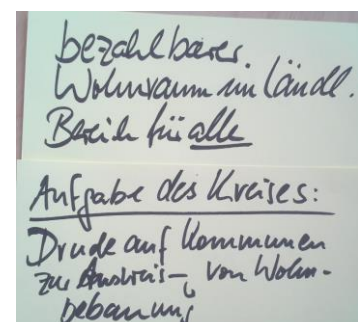 bezahlbarer
Wohnraum im ländl.
Bereich für alle
Aufgabe des Kreises:
Druck auf Kommunen
zur Ausweis- von Wohn-
bebauung